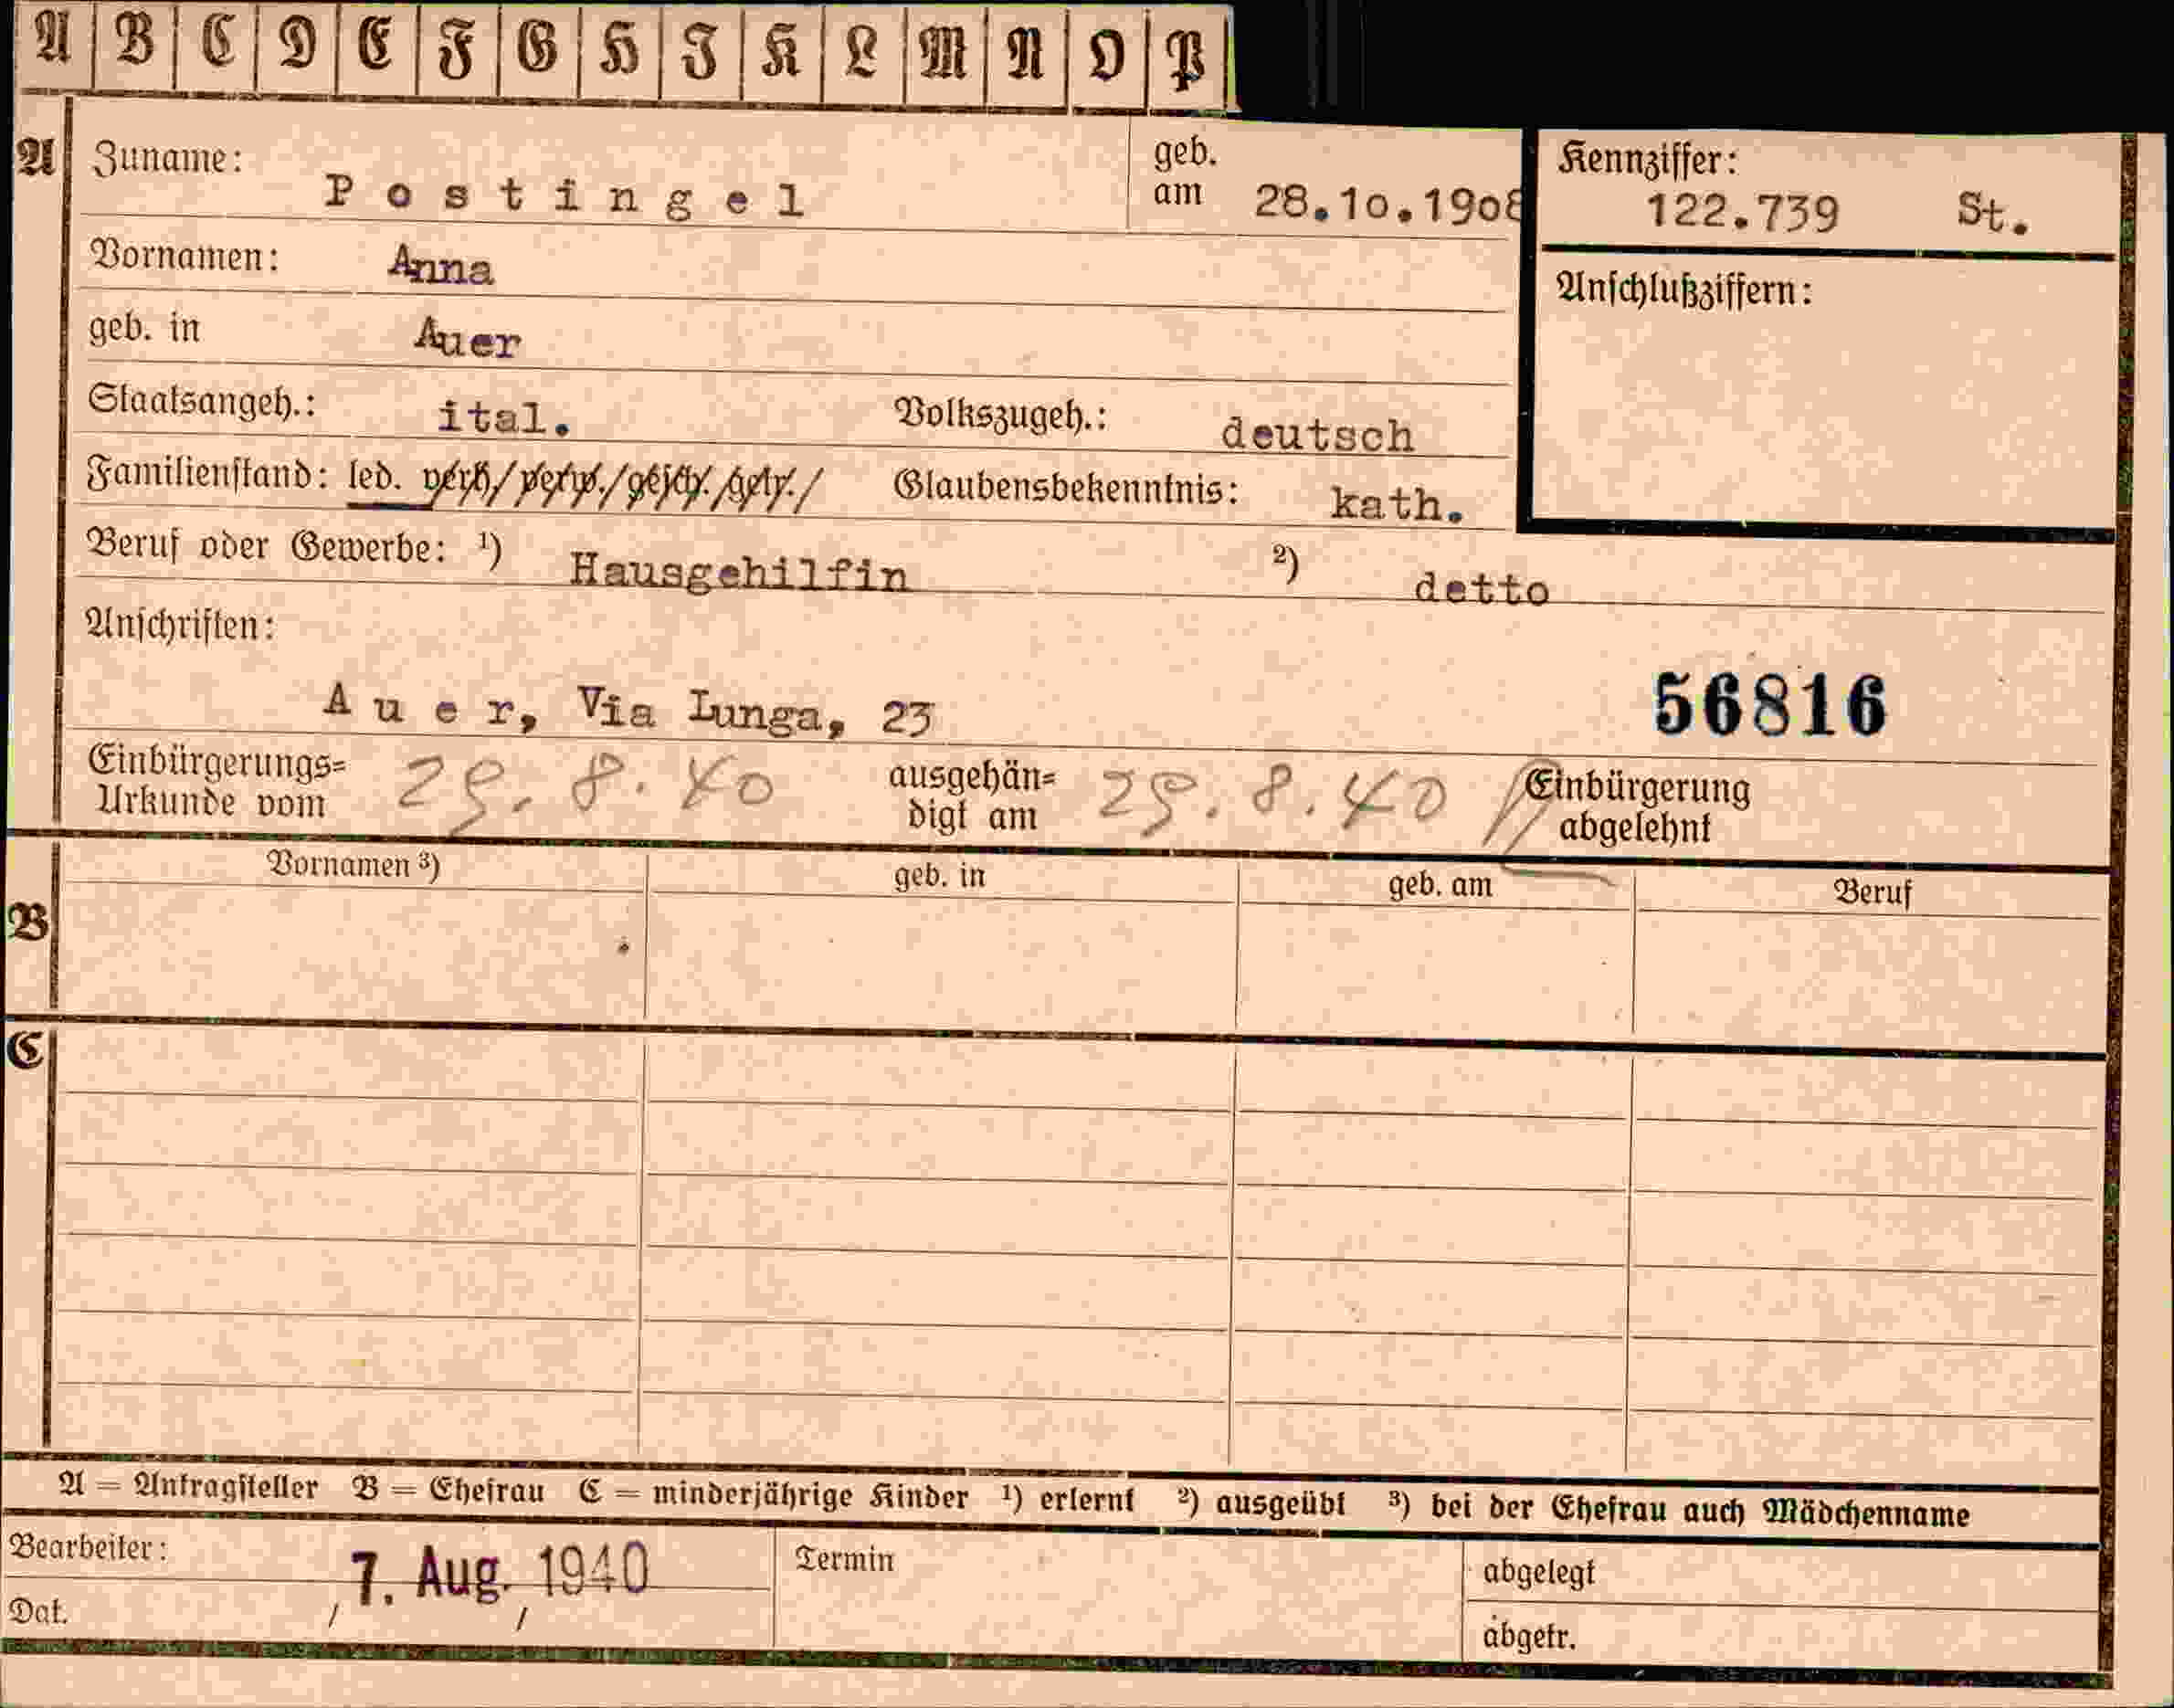 A B C D E F G H J K L M N O P
A Zuname: Postingel geb. am 28.10.1908 Kennziffer: 122.739 St.
Vornamen: Anna Anschlußziffern:
geb. in Auer
Staatsangeh.: ital. Volkszugeh.: deutsch
Familienstand: led. verh/verw./gesch./getr./ Glaubensbekenntnis: kath.
Beruf oder Gewerbe: ¹) Hausgehilfin ²) detto
Anschriften:
Auer, Via Lunga, 23 56816
Einbürgerungs= Urkunde vom 29.8.40 ausgehän= digt am 29.8.40 Einbürgerung abgelehnt
Vornamen ³) geb. in geb. am Beruf
B
C
A = Antragsteller B = Ehefrau C = minderjährige Kinder ¹) erlernt ²) ausgeübt ³) bei der Ehefrau auch Mädchenname
Bearbeiter: 7. Aug. 1940 Termin abgelegt
Dat. / / abgetr.